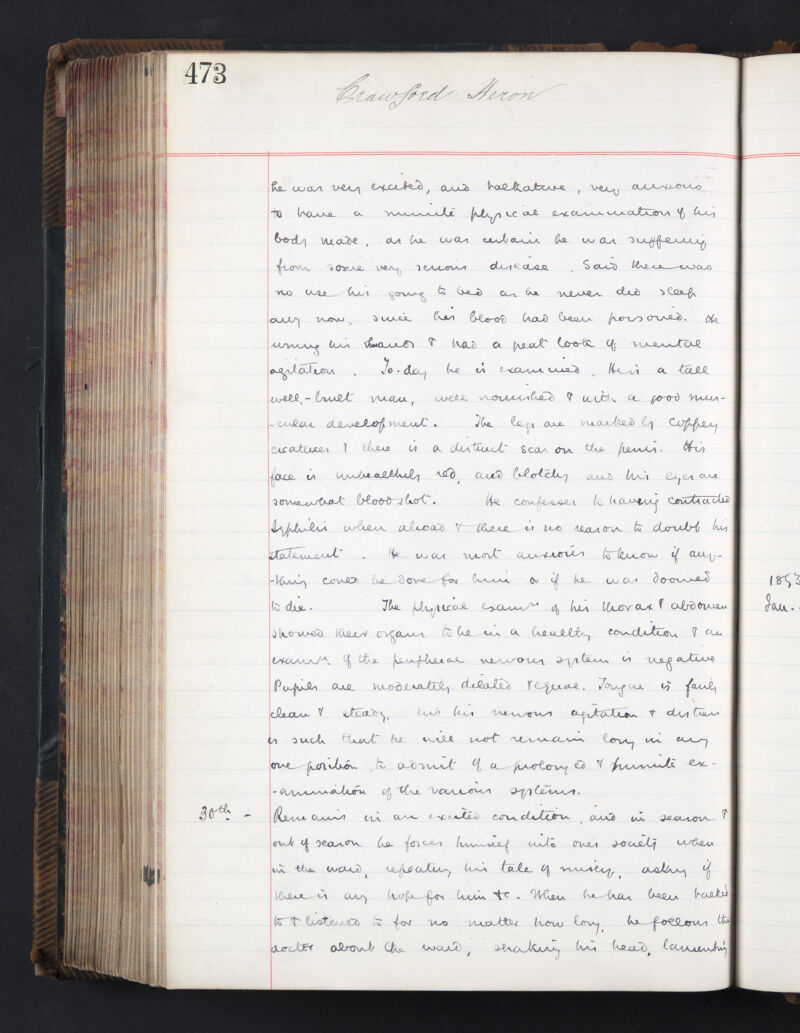 473
Crawford Heron
he was very excited, and talkative, very anxious
to have a minute physical examination of his
body made, as he was certain he was suffering
from some very serious disease. Said there was
no use his going to bed as he never did sleep
any now, since his blood had been poisoned. He
wrung his hands & had a great look of mental
agitation. To-day he is examined. He is a tall
well,-built man, well nourished & with a good mus-
-cular development. The legs are marked by coppery
cicatrices & there is a distinct scar on the penis. His
face is unhealthily red, and blotchy and his eyes are
somewhat bloodshot. He confesses to having contracted
Syphilis when abroad & there is no reason to doubt his
statement. He was most anxious to know if any-
-thing could be done for him or if he was doomed
to die. The physical examn of his thorax & abdomen
showed their organs to be in a healthy condition & an
examn. of the peripheral nervous system is negative
Pupils are moderately dilated & equal. Tongue is fairly
clean & steady, but his nervous agitation & distress
is such that he will not remain long in any
one position, to admit of a prolonged & minute ex-
-amination of the various systems.
30th. - Remains in an excited condition, and in season &
out of season he forces himself into one's society when
in the ward, repeating his tale of misery, asking if
there is any hope for him &c. When he has been talked
to & listened to for no matter how long, he follows the
doctor about the ward, shaking his head, lamenting
1893
Jan.